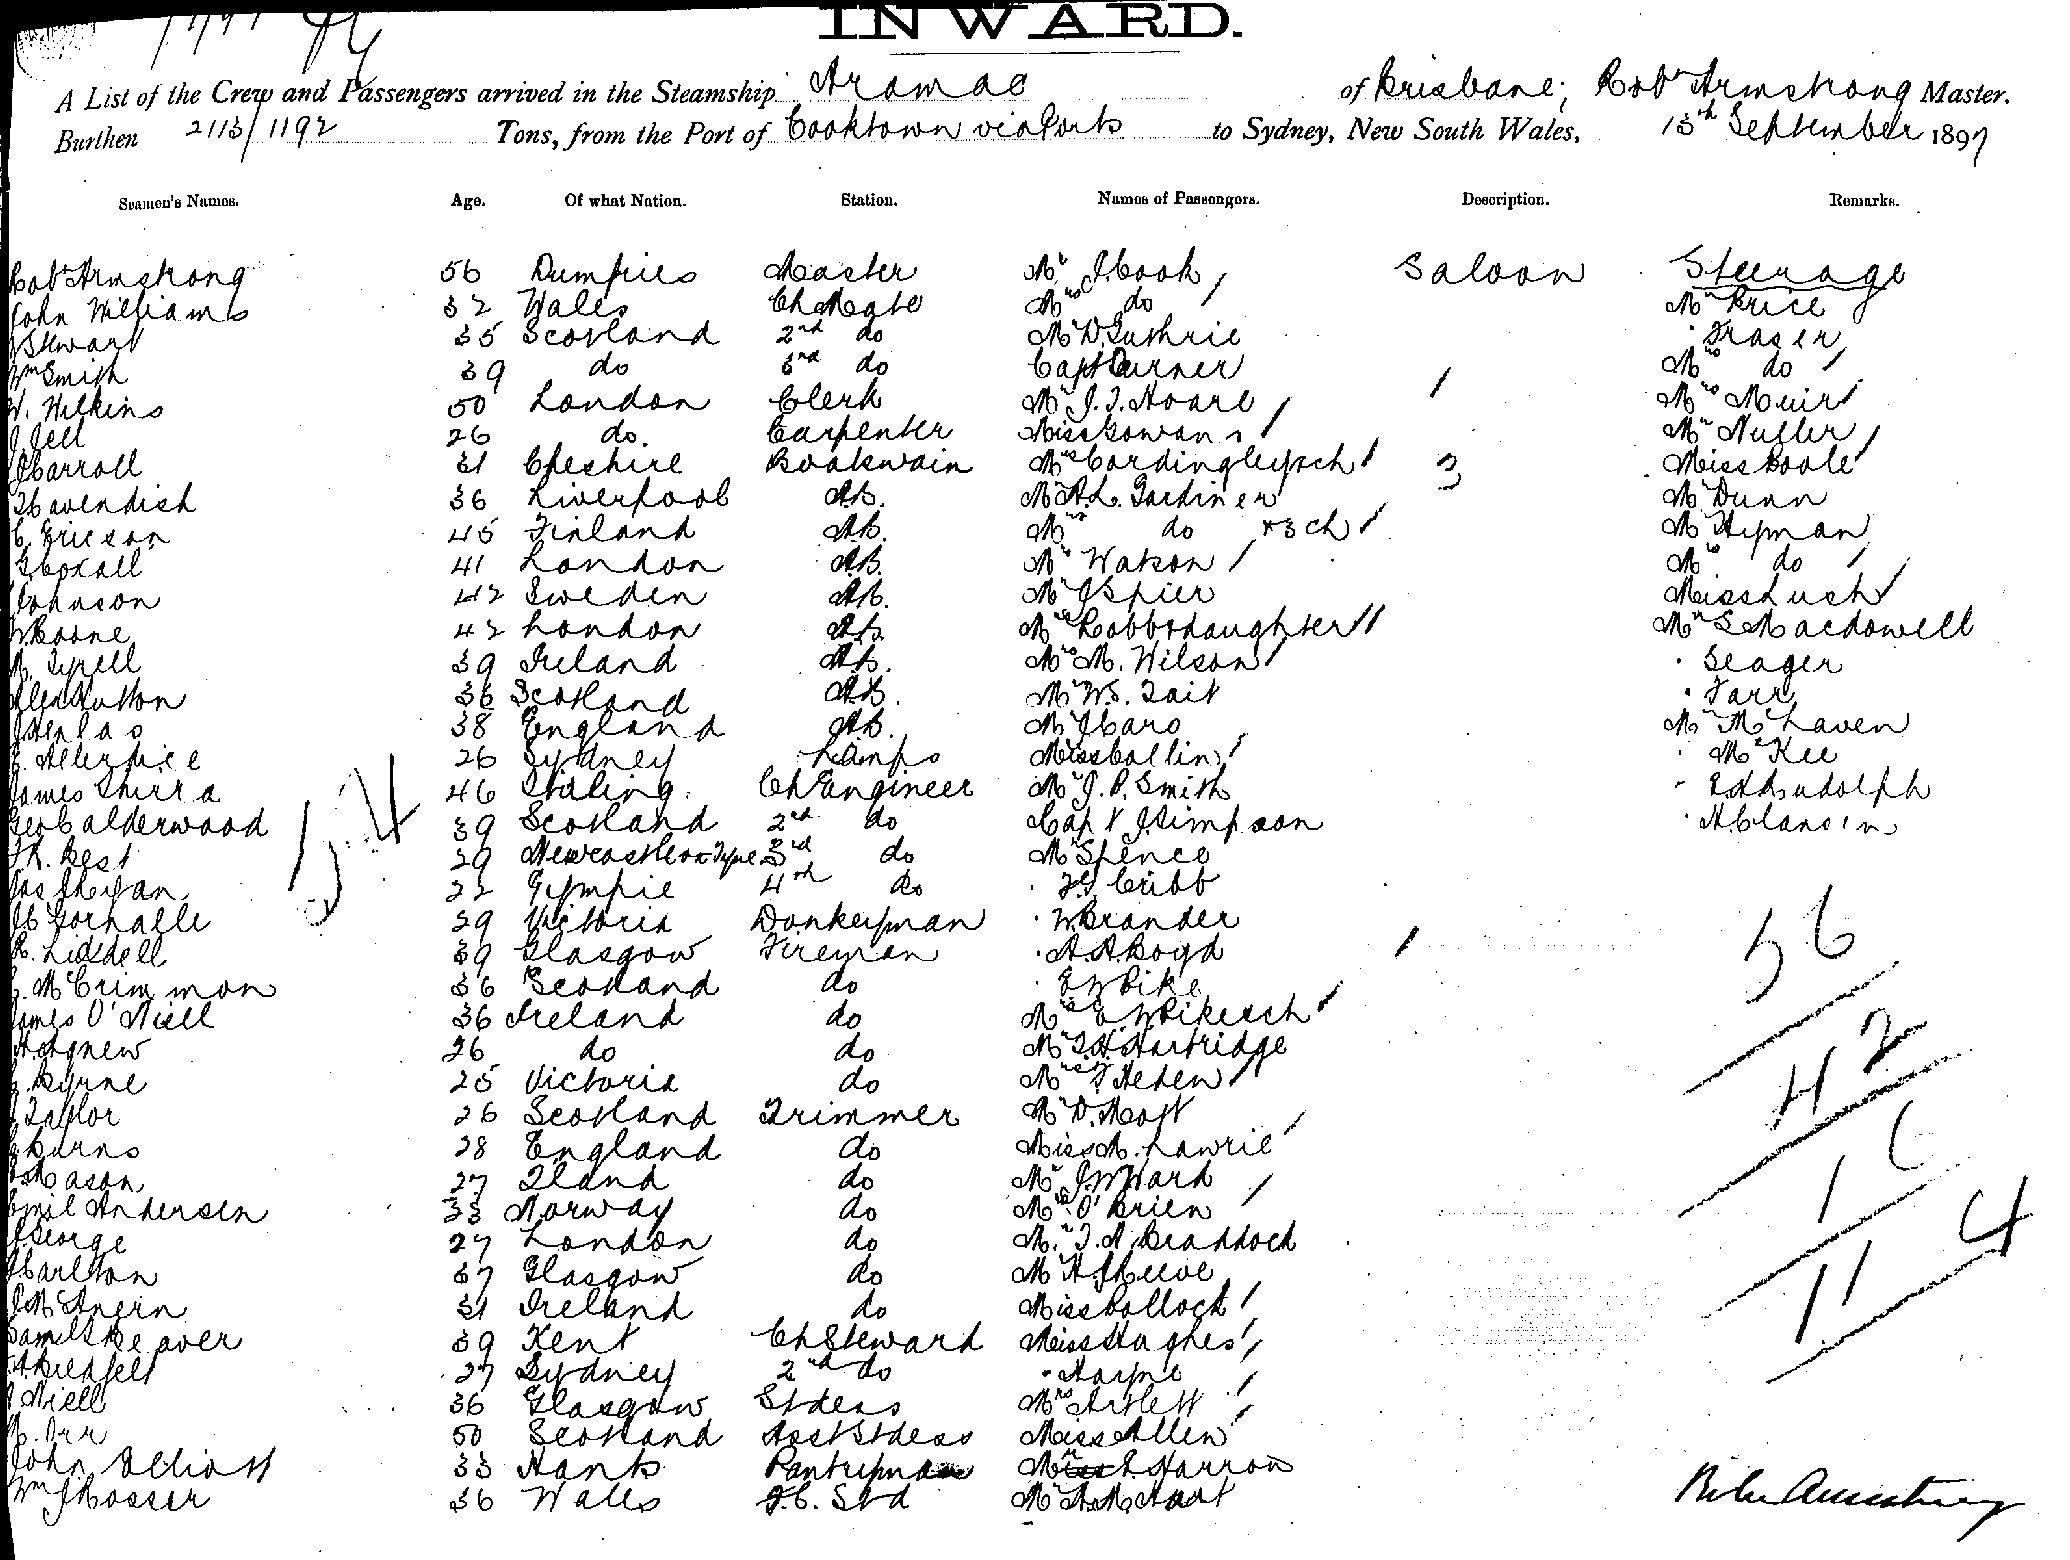 INWARD.
A List of the Crew and Passengers arrived in the Steamship Aramac of Brisbane; Robt Armstrong Master.
Burthen 2113/1192 Tons, from the Port of Cooktown via Ports to Sydney, New South Wales, 13th September 1897
Seamen's Names. Age. Of what Nation. Station. Names of Passengers. Description. Remarks.
Robt Armstrong 56 Dumfries Master Mr J Cook Saloon Steerage
John Williams 32 Wales Ch Mate Mrs do Mr Price
J Stewart 35 Scotland 2nd do Mr D. Guthrie Fraser
Wm Smith 39 do 3rd do Capt Turner Mrs do
W. Wilkins 50 London Clerk Mr J. T. Hoare Mrs Muir
J Jell 26 do. Carpenter Miss Gowans Mr Nutler
J Carroll 31 Cheshire Boatswain Mrs Cordingley & ch 3 Miss Poole
Cavendish 36 Liverpool A.B. Mr A. L. Gardiner Mr Dunn
C. Ericson 45 Finland A.B. Mrs do & 3 ch Mr Hyman
G Coxall 41 London A.B. Mrs Watson Mrs do
Johnson 42 Sweden A.B. Mr J Spier Miss Lush
W Boone 42 London A.B. Mrs Robb & daughter Mr S Macdowell
M. Tyrell 39 Ireland A.B. Mrs M. Wilson Seager
Alex Hutton 36 Scotland A.B. Mr W. S. Tait Farr
38 England A.B. Mr J Caro Mr McLaven
Allerdice 26 Sydney Lamps Miss Collin McKee
James Shirra 46 Stirling Ch Engineer Mr J. P. Smith Rudolph
Geo Calderwood 39 Scotland 2nd do Capt J Simpson A Clansin
Best 29 Newcastle on Tyne 3rd do Mr Spence
Jas Ryan 22 Gympie 4th do Cribb
Gornalle 29 Victoria Donkeyman W Brander 56
R. Liddell 39 Glasgow Fireman A A Boyd
McCrimmon 36 Scotland do E W Pike
James O'Niell 36 Ireland do Mrs E. W Pike & ch
Agnew 26 do do Mr G. H. Hartridge 42
Byrne 25 Victoria do Mrs Heden
Taylor 26 Scotland Trimmer Mr D. Mott
Burns 28 England do Miss M. Lawrie
Mason 27 do Mr J W Ward
Emil Andersen 33 Norway do Mrs O'Brien
George 27 London do Mr T. A. Braddock
Carlton 37 Glasgow do Mr A. J Reeve 11 4
31 Ireland do Miss Pollock
Saml Skeaver 39 Kent Ch Steward Miss Hughes
27 Sydney 2nd do Hayne
Niell 36 Glasgow Stdess Mrs Artlett
M. Orr 50 Scotland Asst Stdess Miss Allen
John Elliott 33 Hants Pantryman Harron
Wm J Rosser 36 Wales F.C. Std Mr A. M. Hart